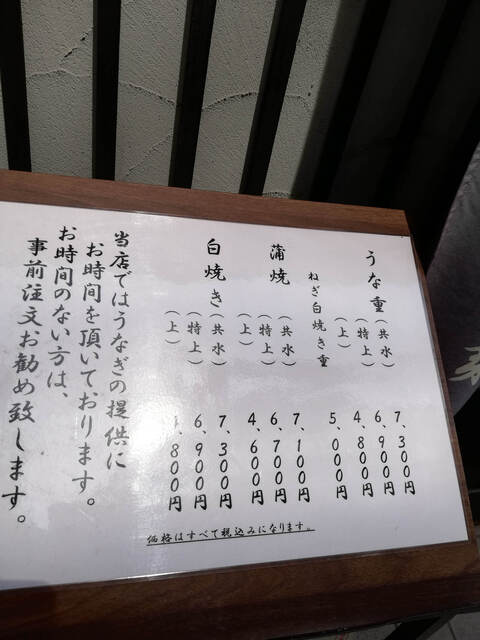 うな重 (共水) 7、300円
(特上) 6、900円
(上) 4、800円
ねぎ白焼き重 5、000円
蒲焼 (共水) 7、100円
(特上) 6、700円
(上) 4、600円
白焼き (共水) 7、300円
(特上) 6、900円
(上) 、800円
当店ではうなぎの提供に
お時間を頂いております。
お時間のない方は、
事前注文お勧め致します。
価格はすべて税込みになります。